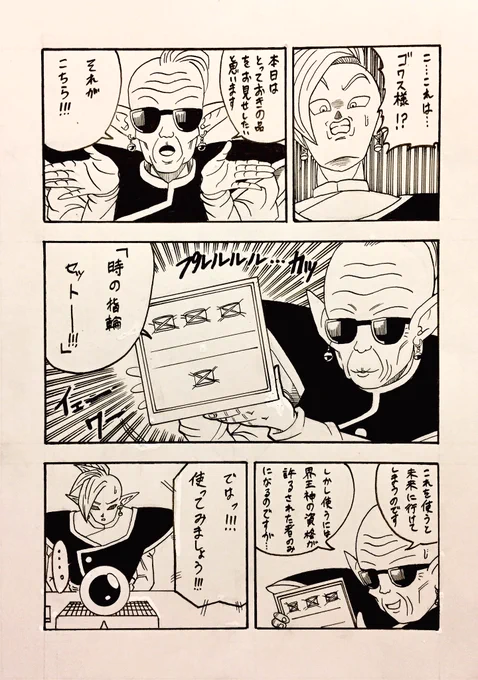 こ…これは…
ゴワス様!?
本日は
とっておきの品
をお見せしたい
と思います
それが
こちら!!!
プルルルル…カッ
「時の指輪
セットー!!!」
イェー
ワー
これを使うと
未来に行けて
しまうのです
しかし使うには
界王神の資格が
許るされた者のみ
になるのですが…
ではッ!!!
使ってみましょう!!!